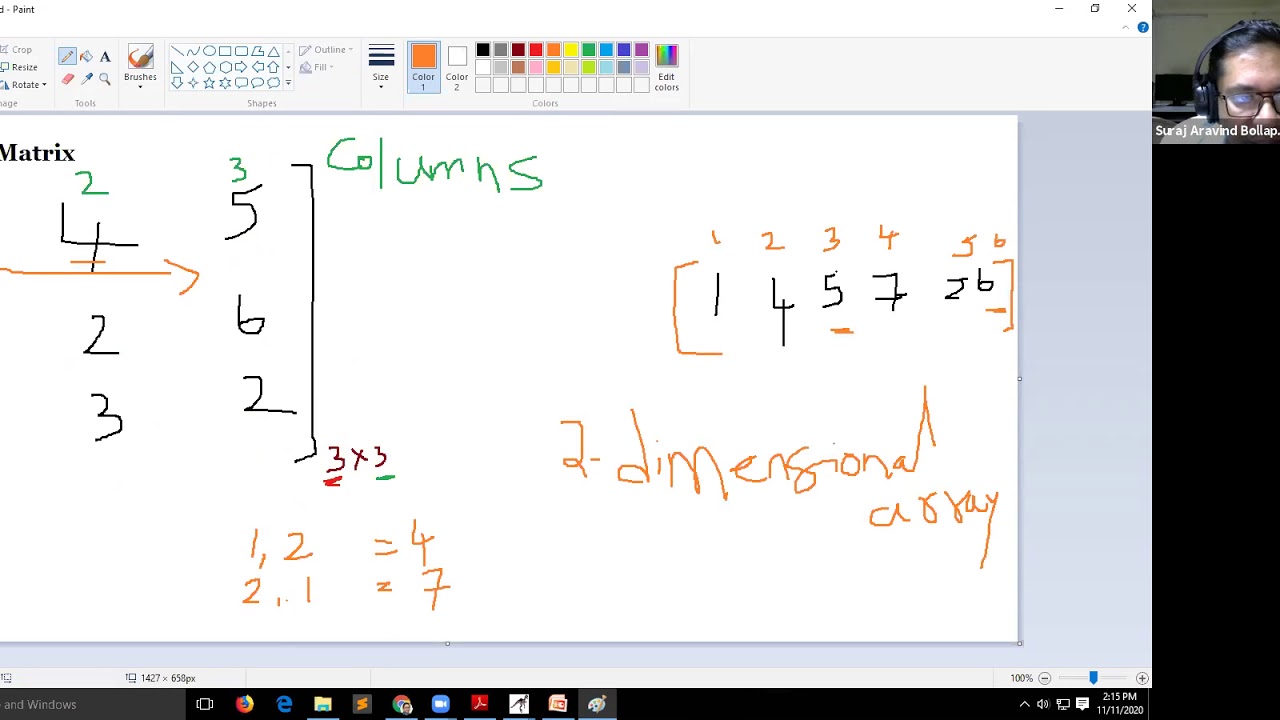 d - Paint
Crop
Resize
Rotate
mage
Tools
Brushes
Shapes
Outline
Fill
Size
Color 1
Color 2
Edit colors
Colors
Suraj Aravind Bollap...
Matrix
Columns
2 3
4 5
2 6
3 2
3x3
1 2 3 4 5 6
[ 1 4 5 7 2 6 ]
2-dimensional
array
1, 2 = 4
2, 1 = 7
1427 × 658px
100%
e and Windows
2:15 PM
11/11/2020